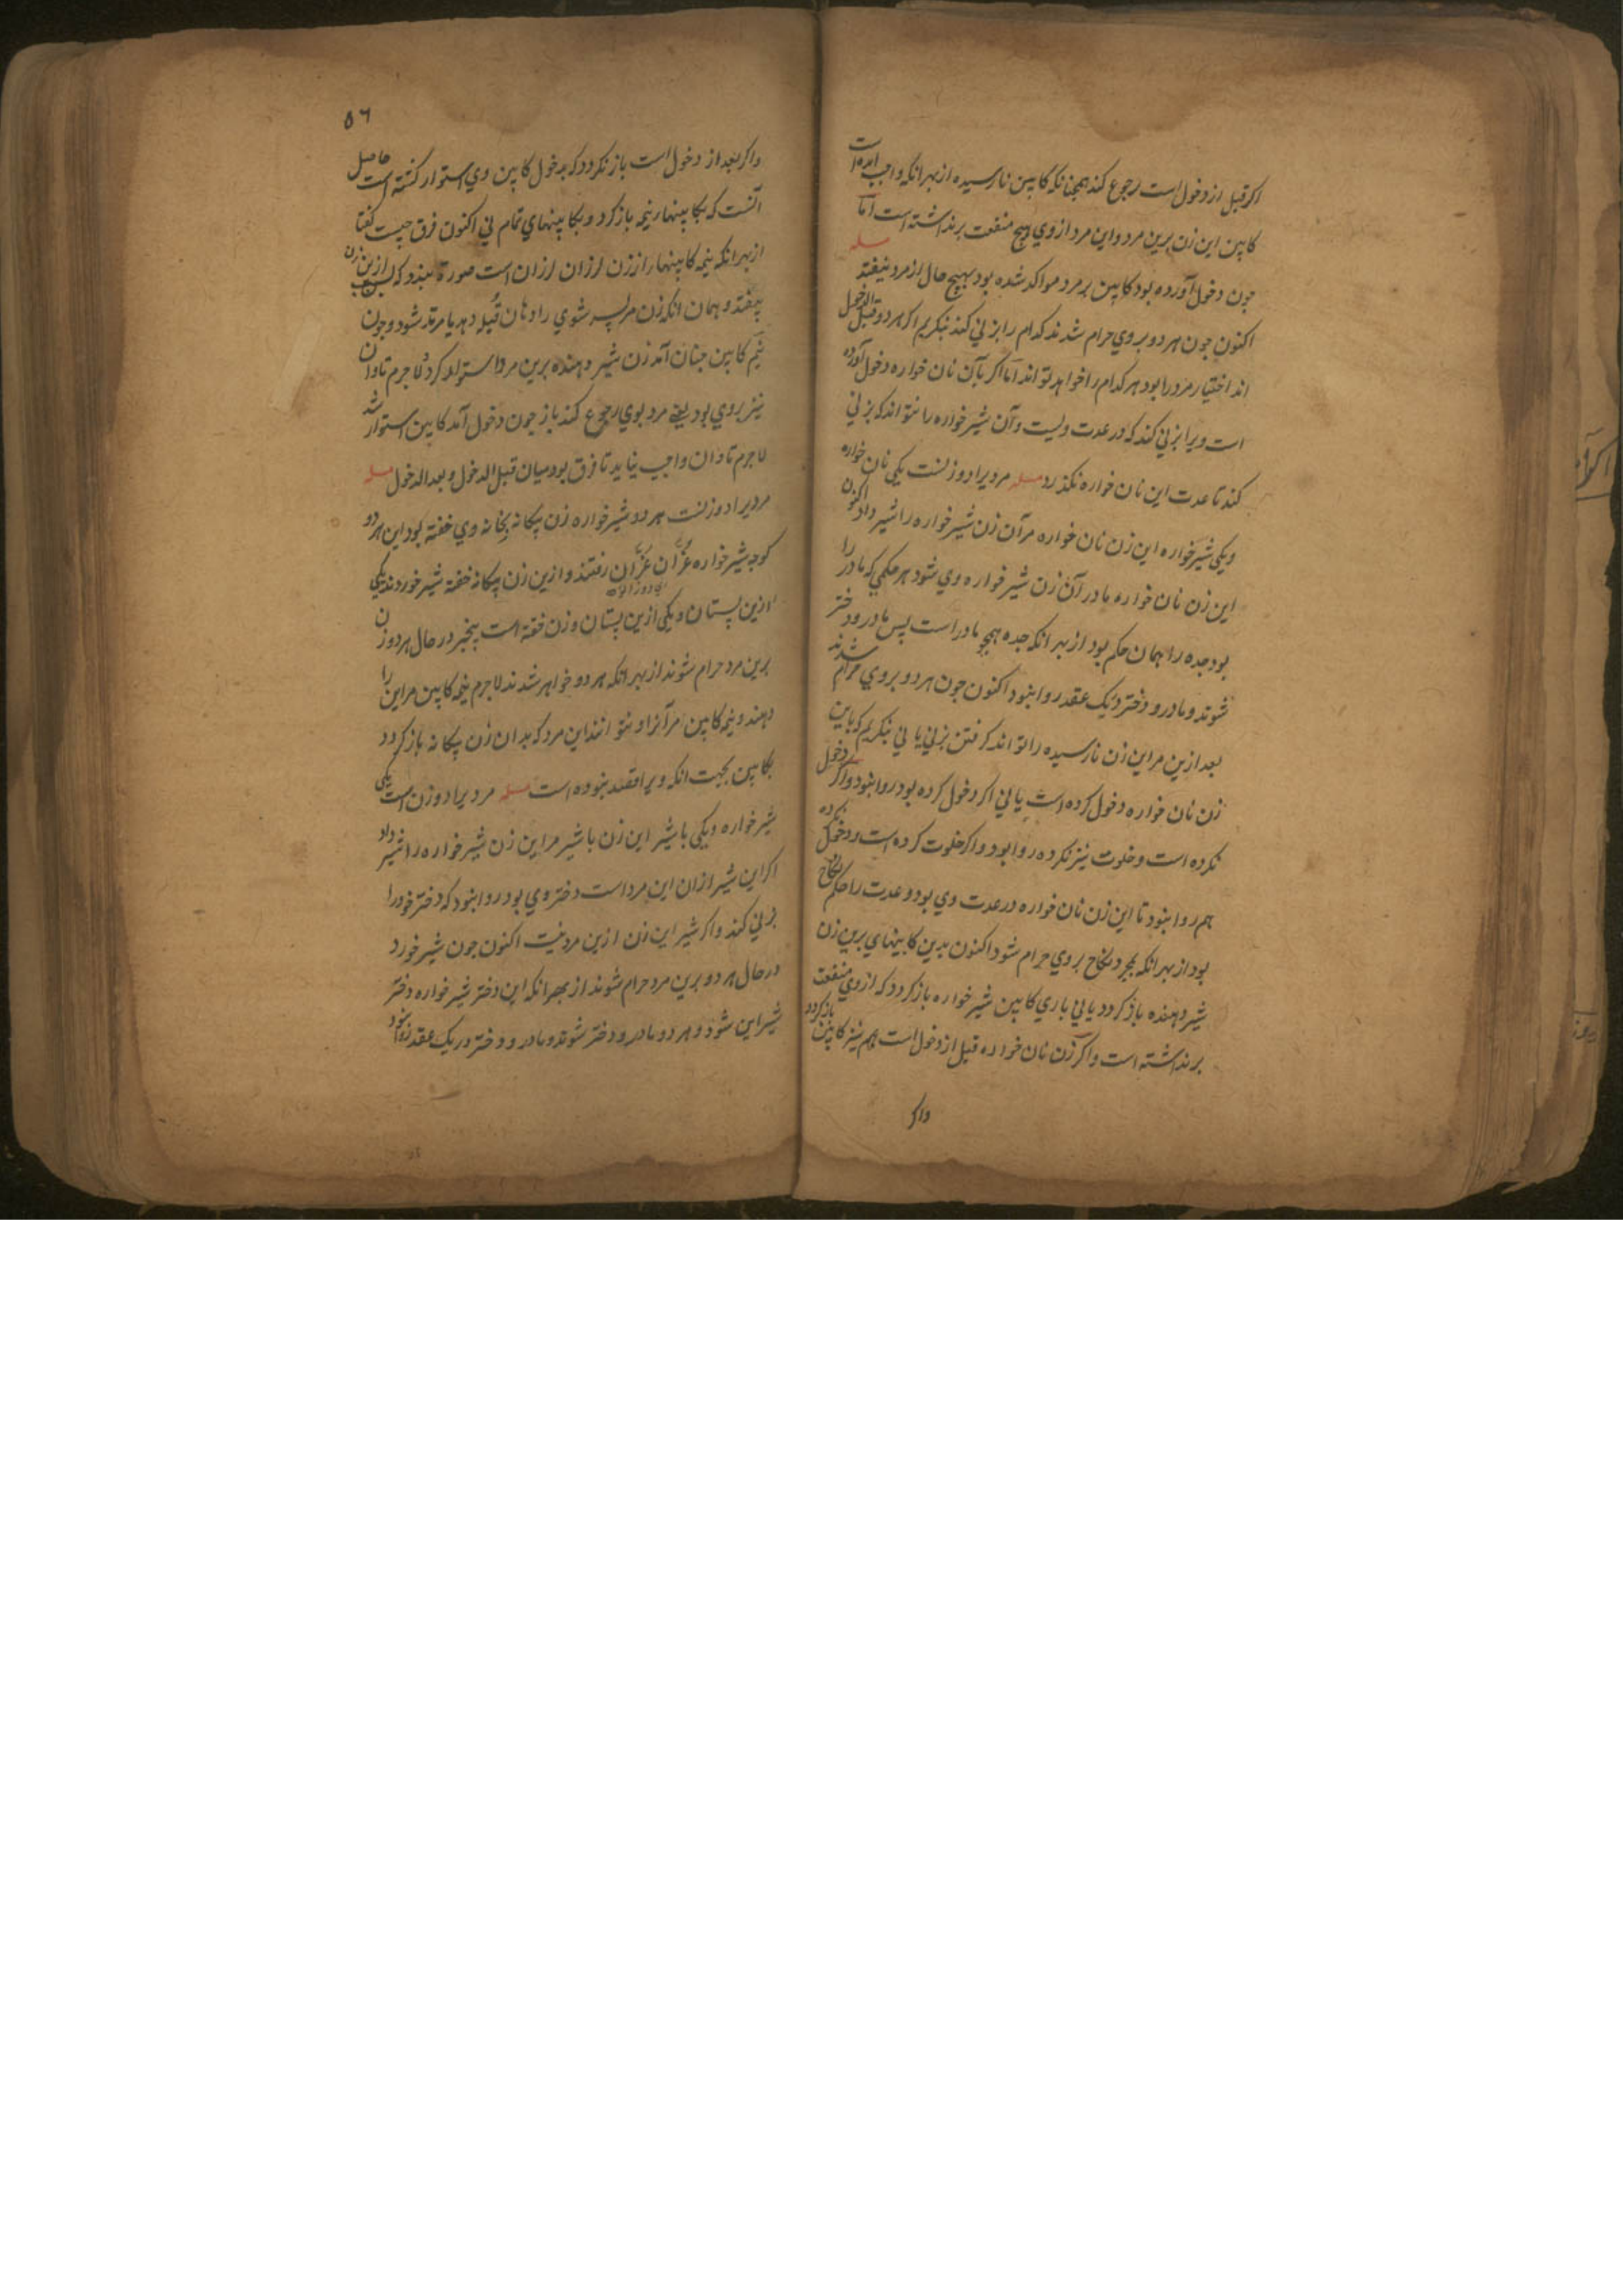 اکر قبل از دخول است رجوع کند همچنانکه کابین نارسیده از بهر انکه واجب امده است
کابین این زن برین مرد و این مرد از وی هیچ منفعت برنداشته است اما
مسله
چون دخول آورده بود کابین بر مرد مواکد شده بود بهیچ حال از مرد نیفتد
اکنون چون هر دو بروی حرام شدند کدام را بزنی کند بنکریم اکر هر دو قبل الدخول
اند اختیار مرد را بود هر کدام را خواهد تواند اما اکر بآن نان خواره دخول آورده
است ویرا بزنی کند که در عدت ویست و آن شیر خواره را نتواند که بزنی
کند تا عدت این نان خواره نکذرد مسله مردیرا دو زنست یکی نان خواره
ویکی شیر خواره این زن نان خواره مر آن زن شیر خواره را شیر داد اکنون
این زن نان خواره مادر آن زن شیر خواره وی شود هر حکمی که مادر را
بود جده را همان حکم بود از بهر انکه جده همچو مادر است پس مادر و دختر
شوند و مادر و دختر دریک عقد روا نبود اکنون چون هر دو بروی حرام شدند
بعد ازین مر این زن نارسیده را تواند کرفتن بزنی یا نی بنکریم که باین
زن نان خواره دخول کرده است یا نی اکر دخول کرده بود روا نبود واکر دخول
نکرده است و خلوت نیز نکرده روا بود واکر خلوت کرده است و دخول نکرده
هم روا نبود تا این زن نان خواره در عدت وی بود و عدت را حکم نکاح
بود از بهر انکه بمجرد نکاح بروی حرام شود اکنون بدین کابینهای برین زن
شیر دهنده باز کردد یا نی باری کابین شیر خواره باز کردد که از وی منفعت
برنداشته است واکر زن نان خواره قبل از دخول است هم نیز کابین باز کردد
واکر
٥٦
واکر بعد از دخول است باز نکردد که بدخول کابین وی استوار کشته است حاصل
آنست که بکابینها نیمه باز کردد و بکابینهای تمام نی اکنون فرق چیست کفتا
از بهر انکه نیمه کابینها را از زن لرزان لرزان است صورة بندد که ازین زن
بیفتد و همان انکه زن مر پسر شوی را دهان قبله دهد یا مرتد شود و چون
نیم کابین چنان آمد زن شیر دهنده برین مرد استوار کرد لاجرم تاوان
نیز بروی بود یعنی مرد بوی رجوع کند باز چون دخول آمد کابین استوار شد
لاجرم تاوان واجب نیاید تا فرق بود میان قبل الدخول و بعد الدخول مسله
مردیرا دو زنست هر دو شیر خواره زن بیکانه بخانه وی خفته بود این هر دو
کوچه شیر خواره غژان غژان رفتند و ازین زن بیکانه خفته شیر خوردند یکی
ازین پستان و یکی ازین پستان و زن خفته است بیخبر در حال هر دو زن
برین مرد حرام شوند از بهر انکه هر دو خواهر شدند لاجرم نیمه کابین مر این را
دهند و نیمه کابین مر آنرا و نتوانند این مرد که بدان زن بیکانه باز کردد
بکابین بجهت انکه ویرا قصد نبوده است مسله مردیرا دو زن است یکی
شیر خواره ویکی با شیر این زن با شیر مر این زن شیر خواره را شیر داد
اکر این شیر ازان این مرد است دختر وی بود روا نبود که دختر خود را
بزنی کند واکر شیر این زن ازین مرد نیست اکنون چون شیر خورد
در حال هر دو برین مرد حرام شوند از بهر انکه این دختر شیر خواره دختر
شیر این شود و هر دو مادر و دختر شوند و مادر و دختر در یک عقد روا نبود